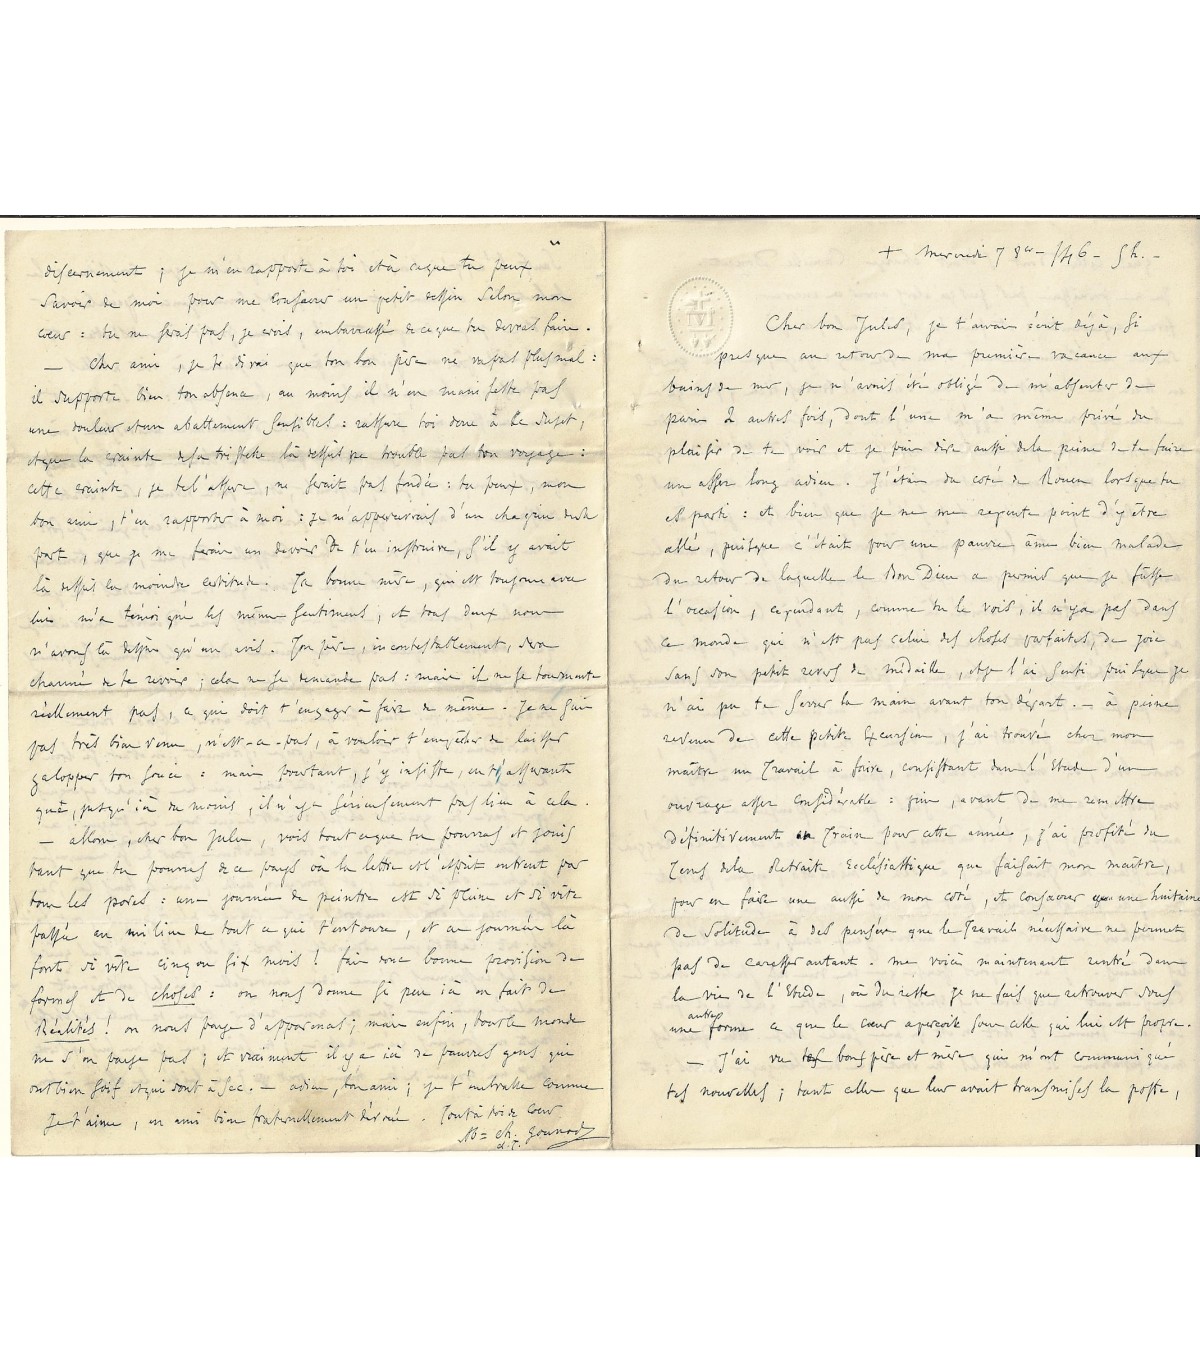 + Mercredi 7 8bre - /46 - 5h. -
Cher bon Jules, je t'aurais écrit déjà, si
presque au retour de ma première vacance aux
bains de mer, je n'avais été obligé de m'absenter de
paris 2 autres fois, dont l'une m'a même privé du
plaisir de te voir et je puis dire aussi de la peine de te faire
un assez long adieu. J'étais du coté de Rouen lorsque tu
es parti : et bien que je ne me repente point d'y être
allé, puisque c'était pour une pauvre âme bien malade
du retour de laquelle le Bon Dieu a permis que je fusse
l'occasion, cependant, comme tu le vois, il n'y a pas dans
ce monde qui n'est pas celui des choses parfaites, de joie
sans son petit revers de médaille, et je l'ai senti puisque je
n'ai pu te serrer la main avant ton départ. - à peine
revenu de cette petite Excursion, j'ai trouvé chez mon
maître un Travail à faire, consistant dans l'Etude d'un
ouvrage assez considérable : puis, avant de me remettre
définitivement en Train pour cette année, j'ai profité du
Tems de la Retraite Ecclésiastique que faisait mon maître,
pour en faire une aussi de mon coté, et consacrer une huitaine
de solitude à des pensées que le Travail nécessaire ne permet
pas de caresser autant. me voici maintenant rentré dans
la vie de l'Etude, où du reste je ne fais que retrouver sous
une autre forme ce que le cœur aperçoit sous celle qui lui est propre.
- J'ai vu tes bons père et mère qui m'ont communiqué
tes nouvelles ; tant celles que leur avait transmises la poste,
discernement ; je m'en rapporte à toi et à ce que tu peux
savoir de moi pour me consacrer un petit dessin selon mon
cœur : tu ne seras pas, je crois, embarrassé de ce que tu devras faire.
- Cher ami, je te dirai que ton bon père ne va pas plus mal :
il supporte bien ton absence, au moins il n'en manifeste pas
une douleur et un abattement sensibles : rassure toi donc à ce sujet,
et que la crainte de sa tristesse là dessus ne trouble pas ton voyage :
cette crainte, je te l'assure, ne serait pas fondée : tu peux, mon
bon ami, t'en rapporter à moi : je m'appercevrais d'un chagrin de sa
part, que je me ferais un devoir de t'en instruire, s'il y avait
là dessus la moindre certitude. Ta bonne mère, qui est toujours avec
lui m'a témoigné les mêmes sentimens, et tous deux nous
n'avons là dessus qu'un avis. Ton père, incontestablement, sera
charmé de te revoir ; cela ne se demande pas : mais il ne se tourmente
réellement pas, ce qui doit t'engager à faire de même. Je ne suis
pas très bien venu, n'est-ce-pas, à vouloir t'empêcher de laisser
galopper ton souci : mais pourtant, j'y insiste, en t'assurant
que, jusqu'ici du moins, il n'y a sérieusement pas lieu à cela.
- allons, cher bon Jules, vois tout ce que tu pourras et jouis
tant que tu pourras de ce pays où la lettre et l'esprit entrent par
tous les pores : une journée de peintre est si pleine et si vite
passée au milieu de tout ce qui t'entoure, et ces journées là
font si vite cinq ou six mois ! fais donc bonne provision de
formes et de choses : on nous donne si peu ici en fait de
Réalités ! on nous paye d'apparences ; mais enfin, tout le monde
ne s'en paye pas ; et vraiment il y a ici de pauvres gens qui
ont bien soif et qui sont à sec. - adieu, bon ami ; je t'embrasse comme
je t'aime, en ami bien fraternellement dévoué. Tout à toi de cœur
Ch. Gounod